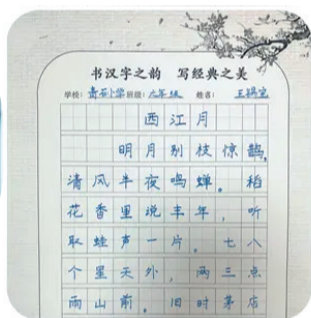 书汉字之韵 写经典之美
学校：青石小学 班级：六年级 姓名：
西江月
明月别枝惊鹊，
清风半夜鸣蝉。稻
花香里说丰年，听
取蛙声一片。七八
个星天外，两三点
雨山前。旧时茅店